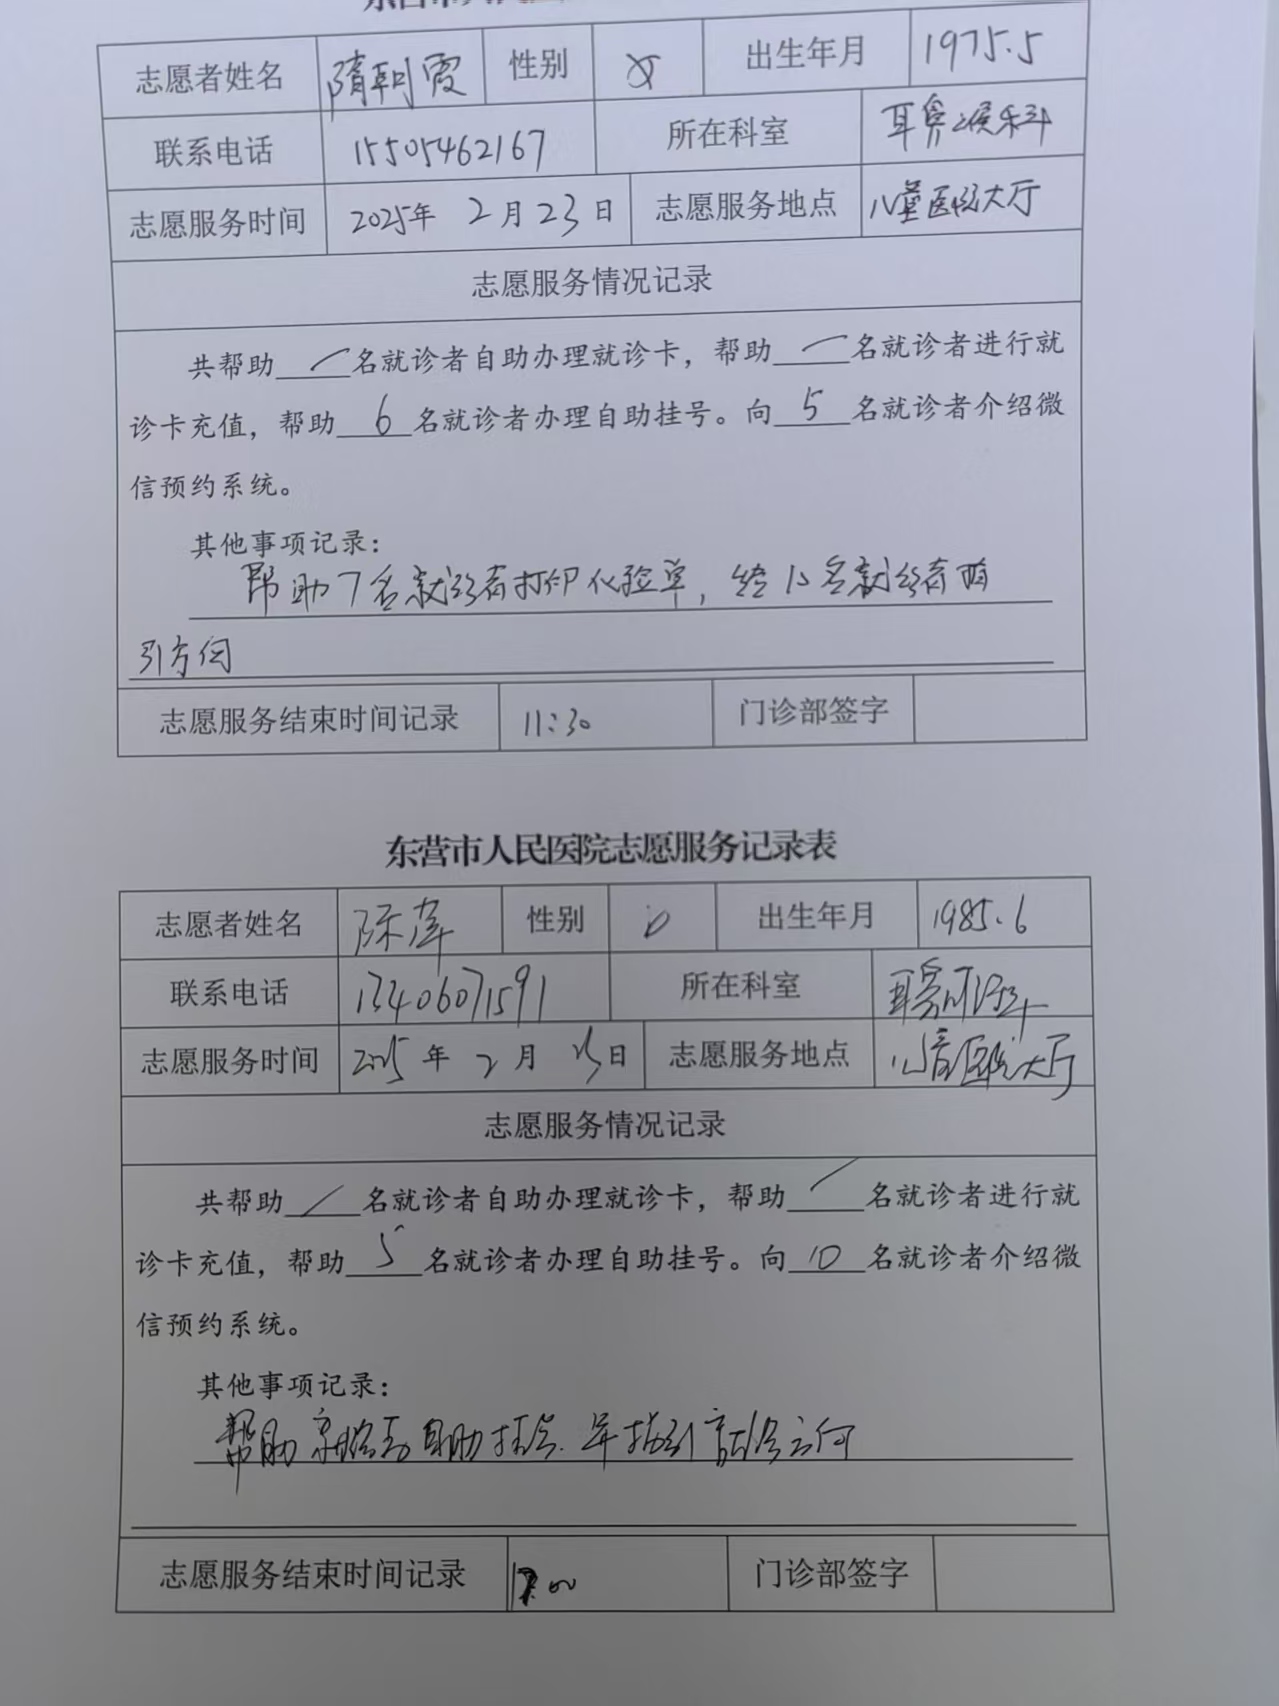 志愿者姓名 隋朝霞 性别 女 出生年月 1975.5
联系电话 15505462167 所在科室 耳鼻喉科
志愿服务时间 2025年 2月23日 志愿服务地点 儿童医院大厅
志愿服务情况记录
共帮助名就诊者自助办理就诊卡，帮助名就诊者进行就
诊卡充值，帮助 6 名就诊者办理自助挂号。向 5 名就诊者介绍微
信预约系统。
其他事项记录：
帮助7名就诊者打印化验单，给15名就诊者
引方向
志愿服务结束时间记录 11:30 门诊部签字
东营市人民医院志愿服务记录表
志愿者姓名 陈萍 性别 出生年月 1985.6
联系电话 13406071591 所在科室
志愿服务时间 2025年 2月 日 志愿服务地点 儿童医院大厅
志愿服务情况记录
共帮助名就诊者自助办理就诊卡，帮助名就诊者进行就
诊卡充值，帮助 5 名就诊者办理自助挂号。向 10 名就诊者介绍微
信预约系统。
其他事项记录：
帮助就诊者自助挂号.并指引就诊方向
志愿服务结束时间记录 门诊部签字